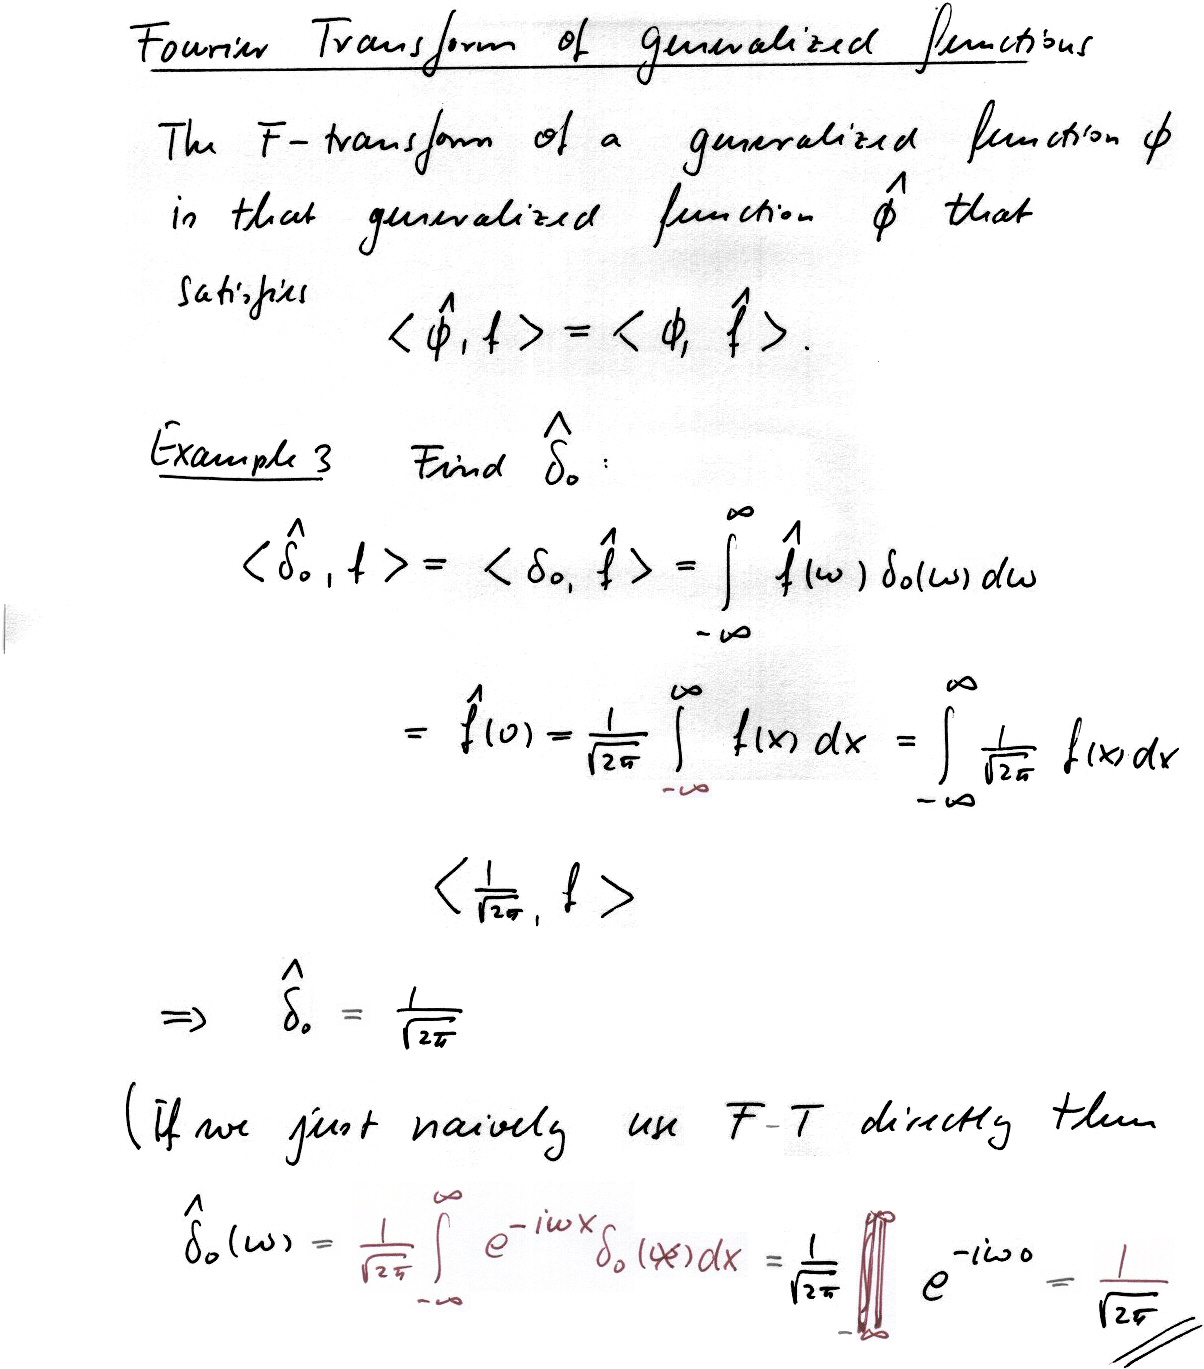 Fourier Transform of generalized functions
The F-transform of a generalized function ϕ
is that generalized function ϕ̂ that
satisfies
<ϕ̂, f> = <ϕ, f̂>.
Example 3 Find δ̂₀ :
<δ̂₀, f> = <δ₀, f̂> = ∫_{-∞}^{∞} f̂(ω) δ₀(ω) dω
= f̂(0) = 1/√2π ∫_{-∞}^{∞} f(x) dx = ∫_{-∞}^{∞} 1/√2π f(x) dx
<1/√2π, f>
⇒ δ̂₀ = 1/√2π
(If we just naively use F-T directly then
δ̂₀(ω) = 1/√2π ∫_{-∞}^{∞} e^{-iωx} δ₀(x) dx = 1/√2π e^{-iω0} = 1/√2π